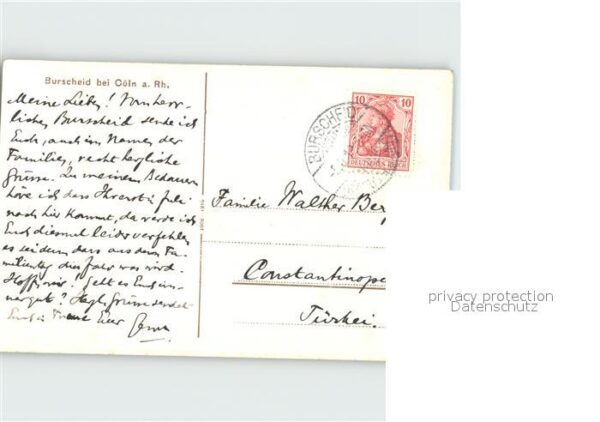 Burscheid bei Cöln a. Rh.
Meine Lieben! Vom herr-
lichen Burscheid sende ich
Euch, auch im Namen der
Familien, recht herzliche
Grüsse. Zu meinem Bedauern
höre ich dass Ihr erst in Juli
nach hier kommt, da werde ich
Euch diesmal leider verfehlen
es sei denn dass aus dem Fa-
dies Jahr was wird.
Hoffen wir. Geht es Euch im-
mer gut? Herzl. Grüsse sendet
Euch in Treue Euer
BURSCHEID
10 10
DEUTSCHES
Familie Walther Ber
Constantinope
Türkei.
privacy protection
Datenschutz